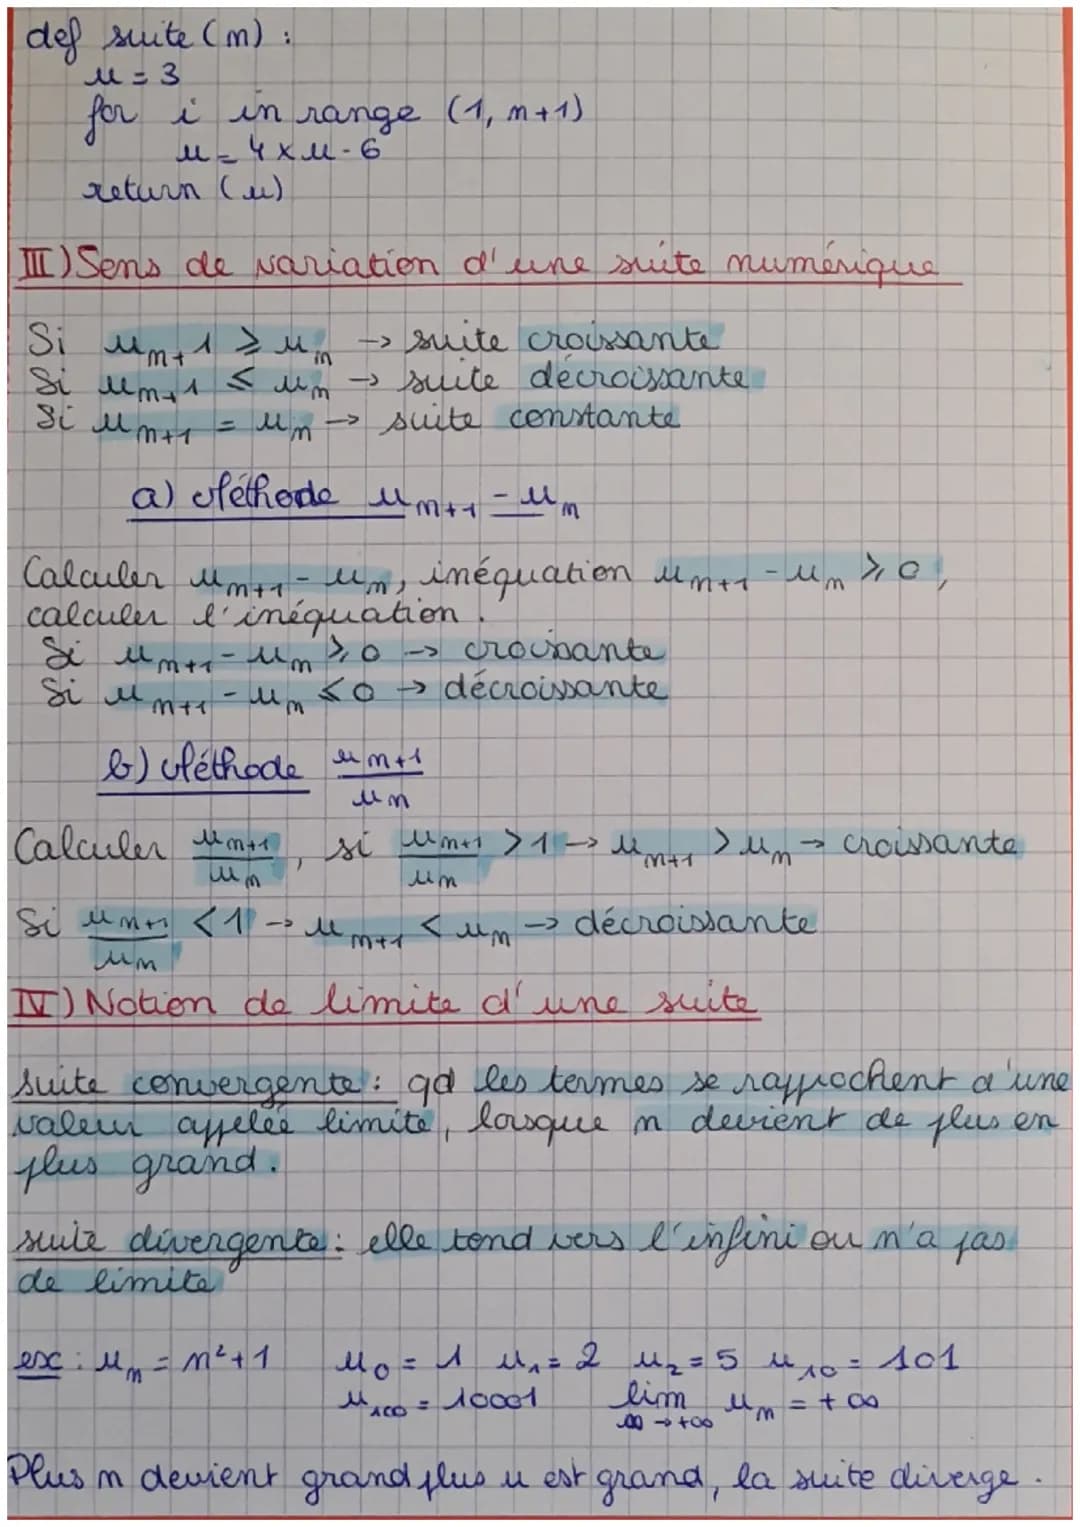 def suite (n) :
u = 3
for i in range (1, n+1)
u = 4 x u - 6
return (u)
III) Sens de variation d'une suite numérique
Si u n+1 ⩾ u n → suite croissante
Si u n+1 ⩽ u n → suite décroissante
Si u n+1 = u n → suite constante
a) Méthode u n+1 - u n
Calculer u n+1 - u n, inéquation u n+1 - u n ⩾ 0,
calculer l'inéquation.
Si u n+1 - u n ⩾ 0 → croissante
Si u n+1 - u n ⩽ 0 → décroissante
b) Méthode u n+1 / u n
Calculer u n+1 / u n, si u n+1 / u n > 1 → u n+1 > u n → croissante
Si u n+1 / u n < 1 → u n+1 < u n → décroissante
IV) Notion de limite d'une suite
suite convergente : qd les termes se rapprochent d'une
valeur appelée limite, lorsque n devient de plus en
plus grand.
suite divergente : elle tend vers l'infini ou n'a pas
de limite
ex : u n = n² + 1 u 0 = 1 u 1 = 2 u 2 = 5 u 10 = 101
u 100 = 10001 lim ∞ → +∞ u n = + ∞
Plus n devient grand plus u est grand, la suite diverge.